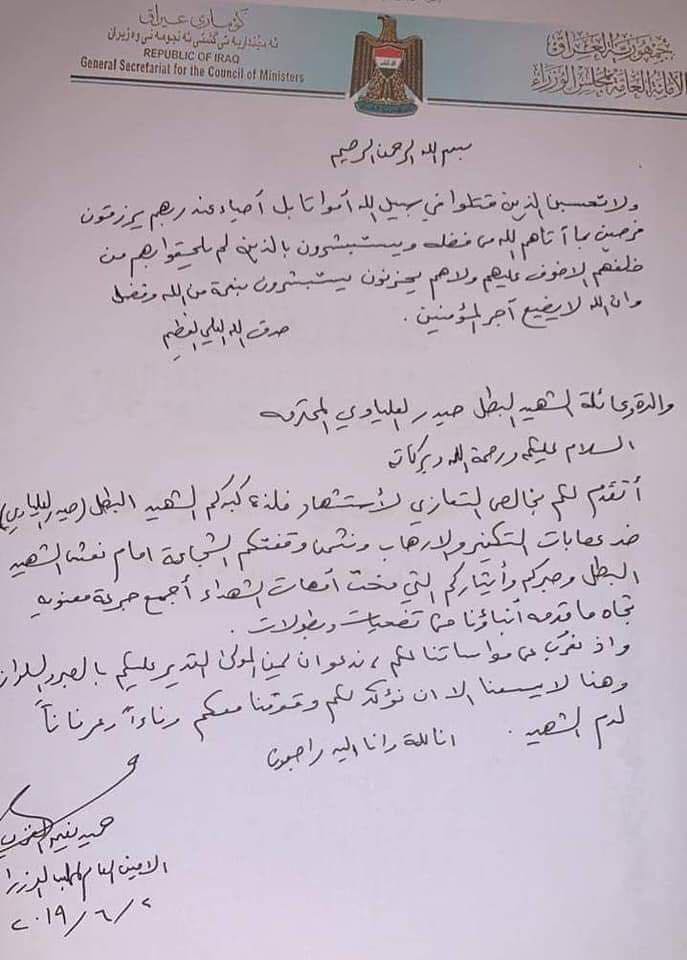 كۆماری عێراق
ئەمینداریەتی گشتی ئەنجومەنی وەزیران
REPUBLIC OF IRAQ
General Secretariat for the Council of Ministers
جمهورية العراق
الأمانة العامة لمجلس الوزراء
بسم الله الرحمن الرحيم
ولا تحسبن الذين قتلوا في سبيل الله أمواتا بل أحياء عند ربهم يرزقون
فرحين بما آتاهم الله من فضله ويستبشرون بالذين لم يلحقوا بهم من
خلفهم الاخوف عليهم ولا هم يحزنون يستبشرون بنعمة من الله وفضل
وان الله لا يضيع أجر المؤمنين .
صدق الله العلي العظيم
والدة وعائلة الشهيد البطل حيدر العلياوي المحترمه
السلام عليكم ورحمة الله وبركاته
أتقدم لكم بخالص التعازي لأستشهاد فلذة كبدكم الشهيد البطل (حيدر العلياوي)
ضد عصابات التكفير والارهاب ونثمن وقفتكم الشجاعة امام نعش الشهيد
البطل وصبركم وأيثاركم التي منحت أمهات الشهداء أجمع جرعة معنويه
تجاه ما قدمه أبناؤنا من تضحيات وبطولات .
واذ نعرب عن مواساتنا لكم ، ندعو ان يمن المولى القدير عليكم بالصبر والسلوان
وهنا لا يسعنا الا ان نؤكد لكم وقوفنا معكم وفاءاً وعرفاناً
لدم الشهيد . انا لله وانا اليه راجعون
حميد نعيم الغزي
الامين العام لمجلس الوزراء
٢٠١٩/٦/٢